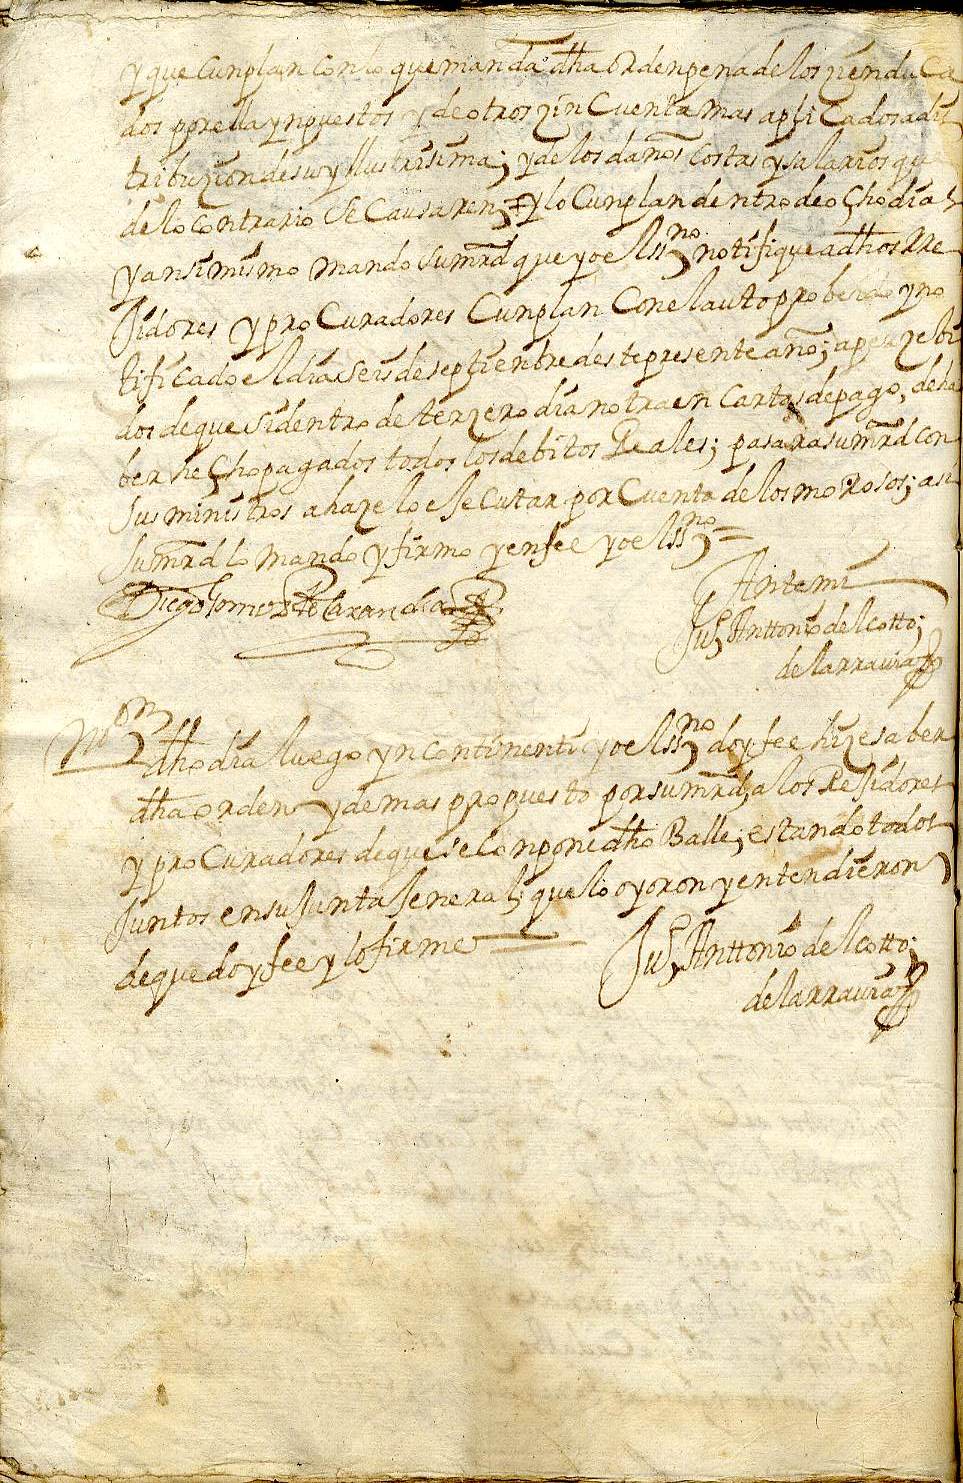 y que Cunplan con lo que manda dha orden pena de los zien duca
dos por ella ynpuestos y de otros zinCuenta mas apliCados a dis
tribuzion de su yllustrisima; y de los daños costas y salarios que
de lo contrario se Causaren; y lo Cunplan dentro de ocho dias
y ansimismo mando su mrd que yo el ssno notifique a dhos Re
Jidores y proCuradores Cunplan con el auto probeido y no
tificado el dia seis de septienbre deste presente año; aperzebi
dos de que si dentro de terzero dia no traen cartas de pago, de ha
ber hecho pagados todos los debitos Reales; pasara su mrd con
sus ministros a hazelo eseCutar por Cuenta de los morosos; asi
su mrd lo mando y firmo y en fee yo el ssno =
Diego de Larandia
Ante mi
Jus Anttonio del Cotto;
de la rrauia
Non
dho dia luego yncontinenti yo el ssno doy fee hize saber
dha orden y demas propuesto por su mrd, a los ReJidores
y proCuradores de que se conpone dho Balle; estando todos
Juntos en su Junta Jeneral; que lo oyoron y entendieron
de que doy fee y lo firme
Jus Anttonio del Cotto;
de la rrauia